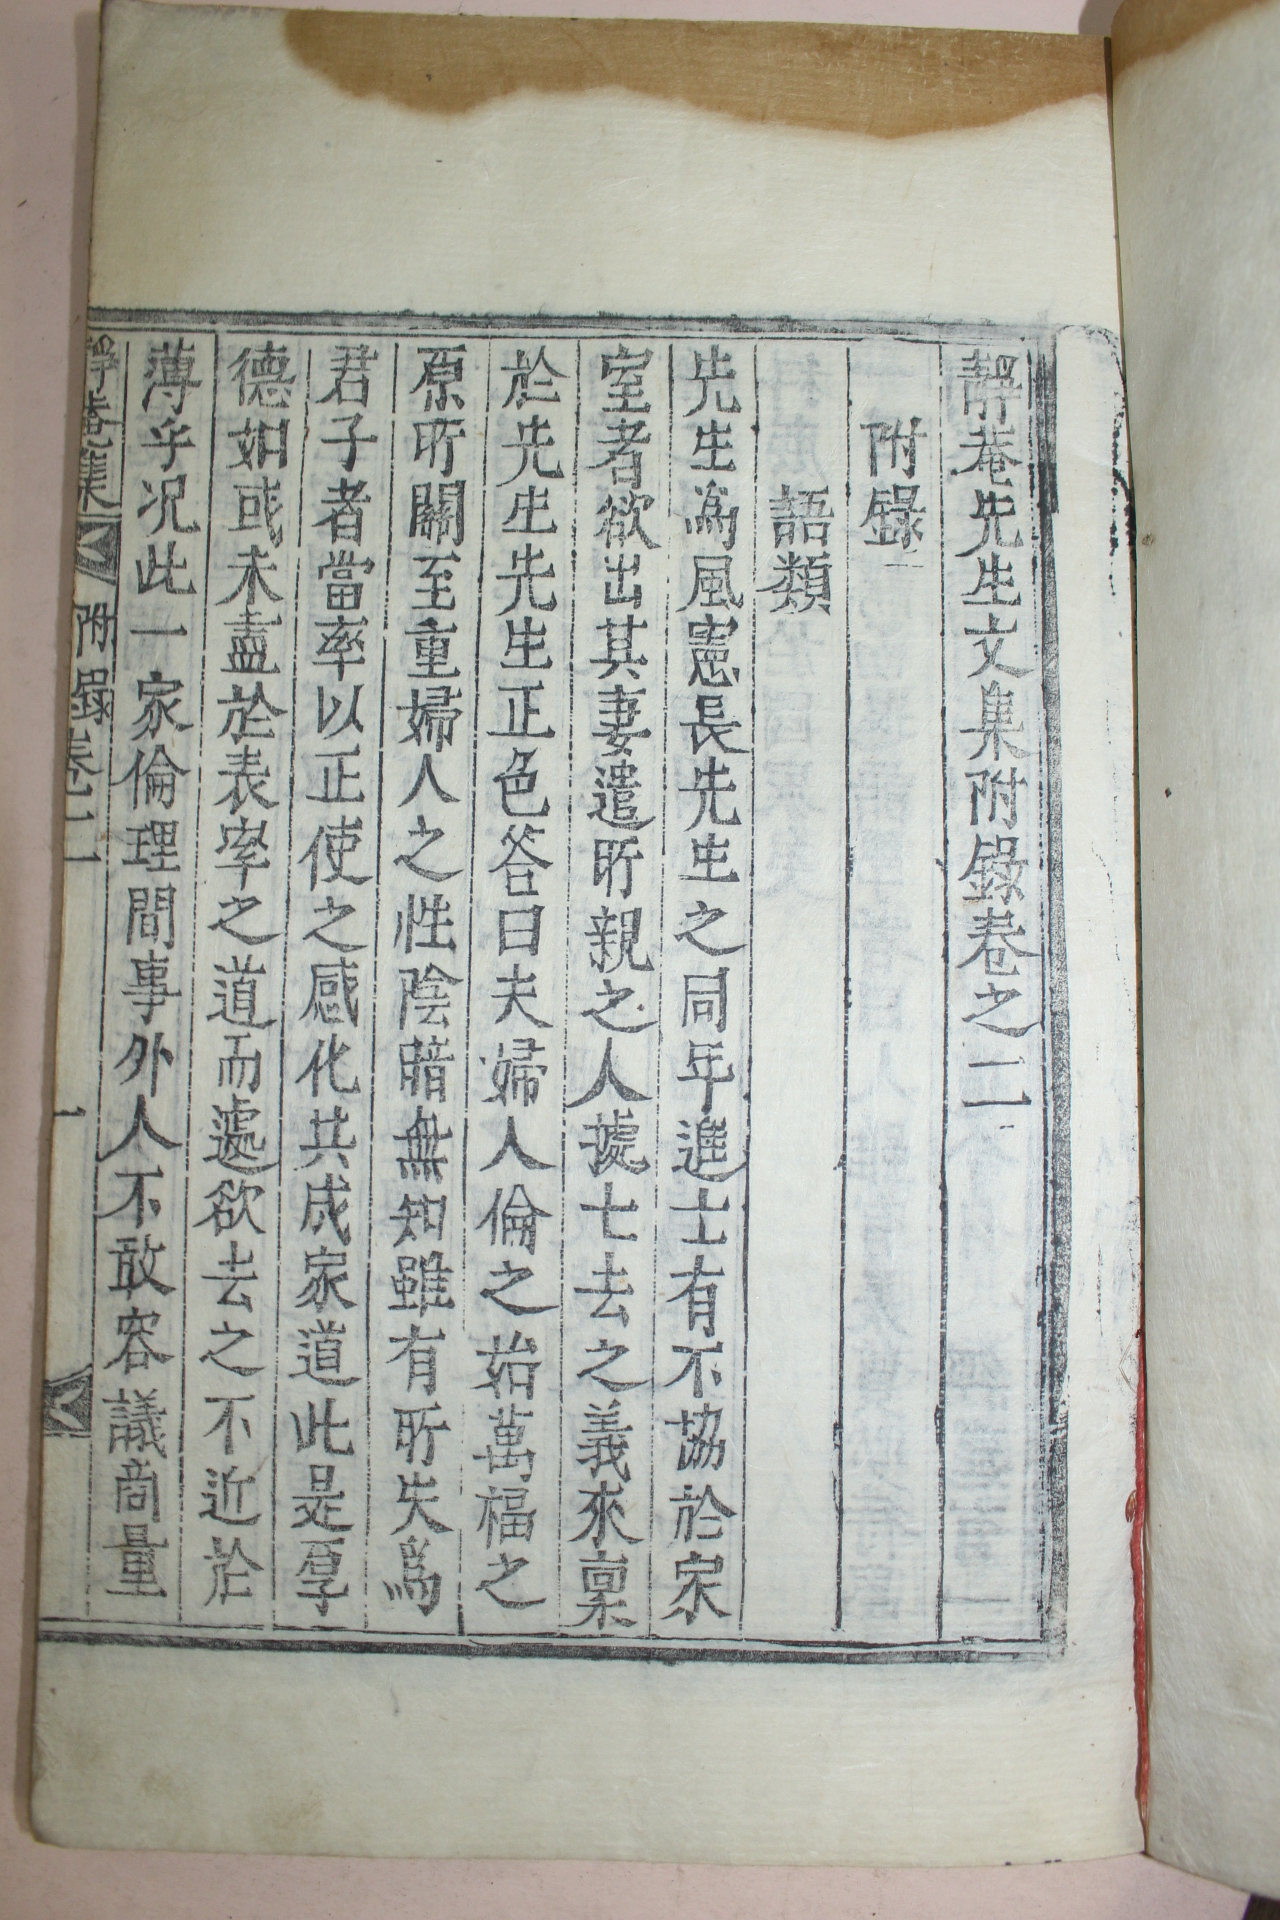 靜菴先生文集附錄卷之二
附錄
語類
先生爲風憲長先生之同年進士有不協於家
室者欲出其妻遣所親之人據七去之義來禀
於先生先生正色答曰夫婦人倫之始萬福之
原所關至重婦人之性陰暗無知雖有所失爲
君子者當率以正使之感化共成家道此是厚
德如或未盡於表率之道而遽欲去之不近於
薄乎况此一家倫理間事外人不敢容議商量
靜菴集 附錄卷二 一